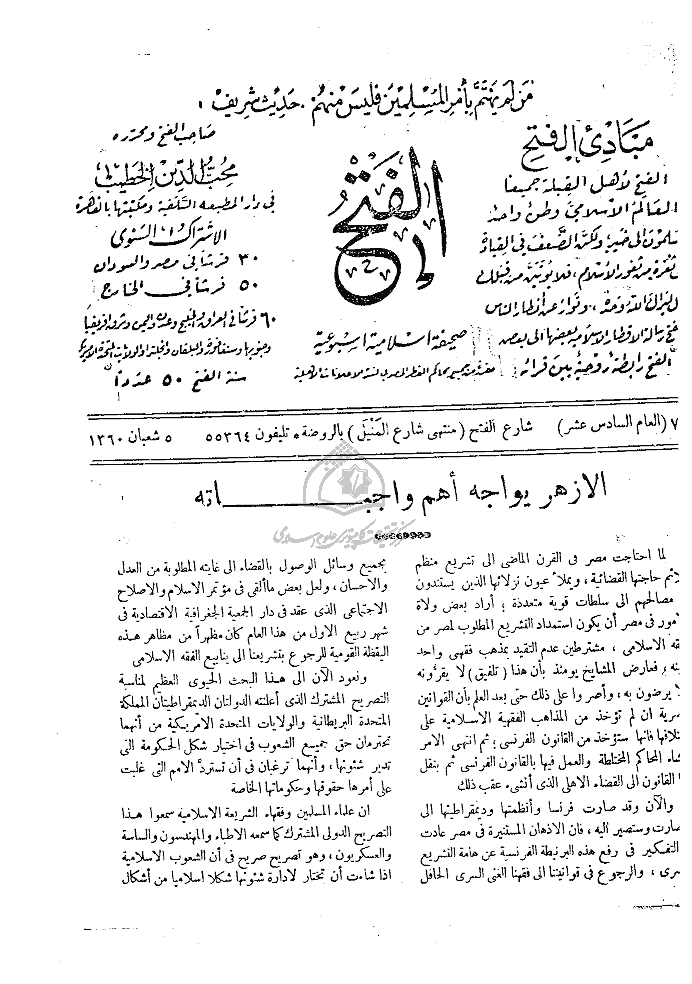 من لم يهتم بأمر المسلمين فليس منهم . حديث شريف
مبادئ الفتح
الفتح لأهل القبلة جميعا
العالم الاسلامي وطن واحد
الى خير ولكن الضعف في القيادة
ثغرة من ثغور الاسلام ، فلا يؤتين من قبلك
وتوار عن أنظار الناس
الاقطار الاسلامية بعضها الى بعض
الفتح رابطة روحية بين قرائه
الفتح
صحيفة اسلامية اسبوعية
صاحب الفتح ومحرره
محب الدين الخطيب
في دار المطبعة السلفية ومكتبتها بالقاهرة
الاشتراك السنوى
٣٠ قرشا فى مصر والسودان
٥٠ قرشا فى الخارج
٦٠ قرشا فى العراق والخليج وعدن واليمن وشرق افريقيا
سنة الفتح ٥٠ عدداً
٧ (العام السادس عشر) شارع الفتح (منتهى شارع المنيل) بالروضة • تليفون ٥٥٣٦٤ ٥ شعبان ١٣٦٠
الازهر يواجه أهم واجبـــــــاته
لما احتاجت مصر فى القرن الماضى الى تشريع منظم
حاجتها القضائية ، ويملأ عيون نزلائها الذين يستندون
مصالحهم الى سلطات قوية متعددة ؛ أراد بعض ولاة
مور فى مصر أن يكون استمداد التشريع المطلوب لمصر من
قه الاسلامى ، مشترطين عدم التقيد بمذهب فقهى واحد
ينه ، فعارض المشايخ يومئذ بأن هذا (تلفيق) لا يقرّونه
لا يرضون به ، وأصروا على ذلك حتى بعد العلم بأن القوانين
صرية ان لم تؤخذ من المذاهب الفقهية الاسلامية على
تلافها فانها ستؤخذ من القانون الفرنسى ؛ ثم انتهى الامر
شاء المحاكم المختلطة والعمل فيها بالقانون الفرنسى ثم بنقل
ا القانون الى القضاء الاهلى الذى أنشىء عقب ذلك
والآن وقد صارت فرنسا وأنظمتها وديمقراطيتها الى
صارت وستصير اليه ، فان الاذهان المستنيرة فى مصر عادت
التفكير فى رفع هذه البرنيطة الفرنسية عن هامة التشريع
صرى ، والرجوع فى قوانيننا الى فقهنا الغنى السرى الحافل
بجميع وسائل الوصول بالقضاء الى غايته المطلوبة من العدل
والاحسان ، ولعل بعض ما ألقى فى مؤتمر الاسلام والاصلاح
الاجتماعى الذى عقد فى دار الجمعية الجغرافية الاقتصادية فى
شهر ربيع الاول من هذا العام كان مظهراً من مظاهر هذه
اليقظة القومية للرجوع بتشريعنا الى ينابيع الفقه الاسلامى
ونعود الآن الى هذا البحث الحيوى العظيم لمناسبة
التصريح المشترك الذى أعلنته الدولتان الديمقراطيتان المملكة
المتحدة البريطانية والولايات المتحدة الامريكية من أنهما
تحترمان حق جميع الشعوب فى اختيار شكل الحكومة التى
تدير شئونها ، وأنهما ترغبان فى أن تستردّ الامم التى غلبت
على أمرها حقوقها وحكوماتها الخاصة
ان علماء المسلمين وفقهاء الشريعة الاسلامية سمعوا هذا
التصريح الدولى المشترك كما سمعه الاطباء والمهندسون والساسة
والعسكريون ، وهو تصريح صريح فى أن الشعوب الاسلامية
اذا شاءت أن تختار لادارة شئونها شكلا اسلاميا من أشكال